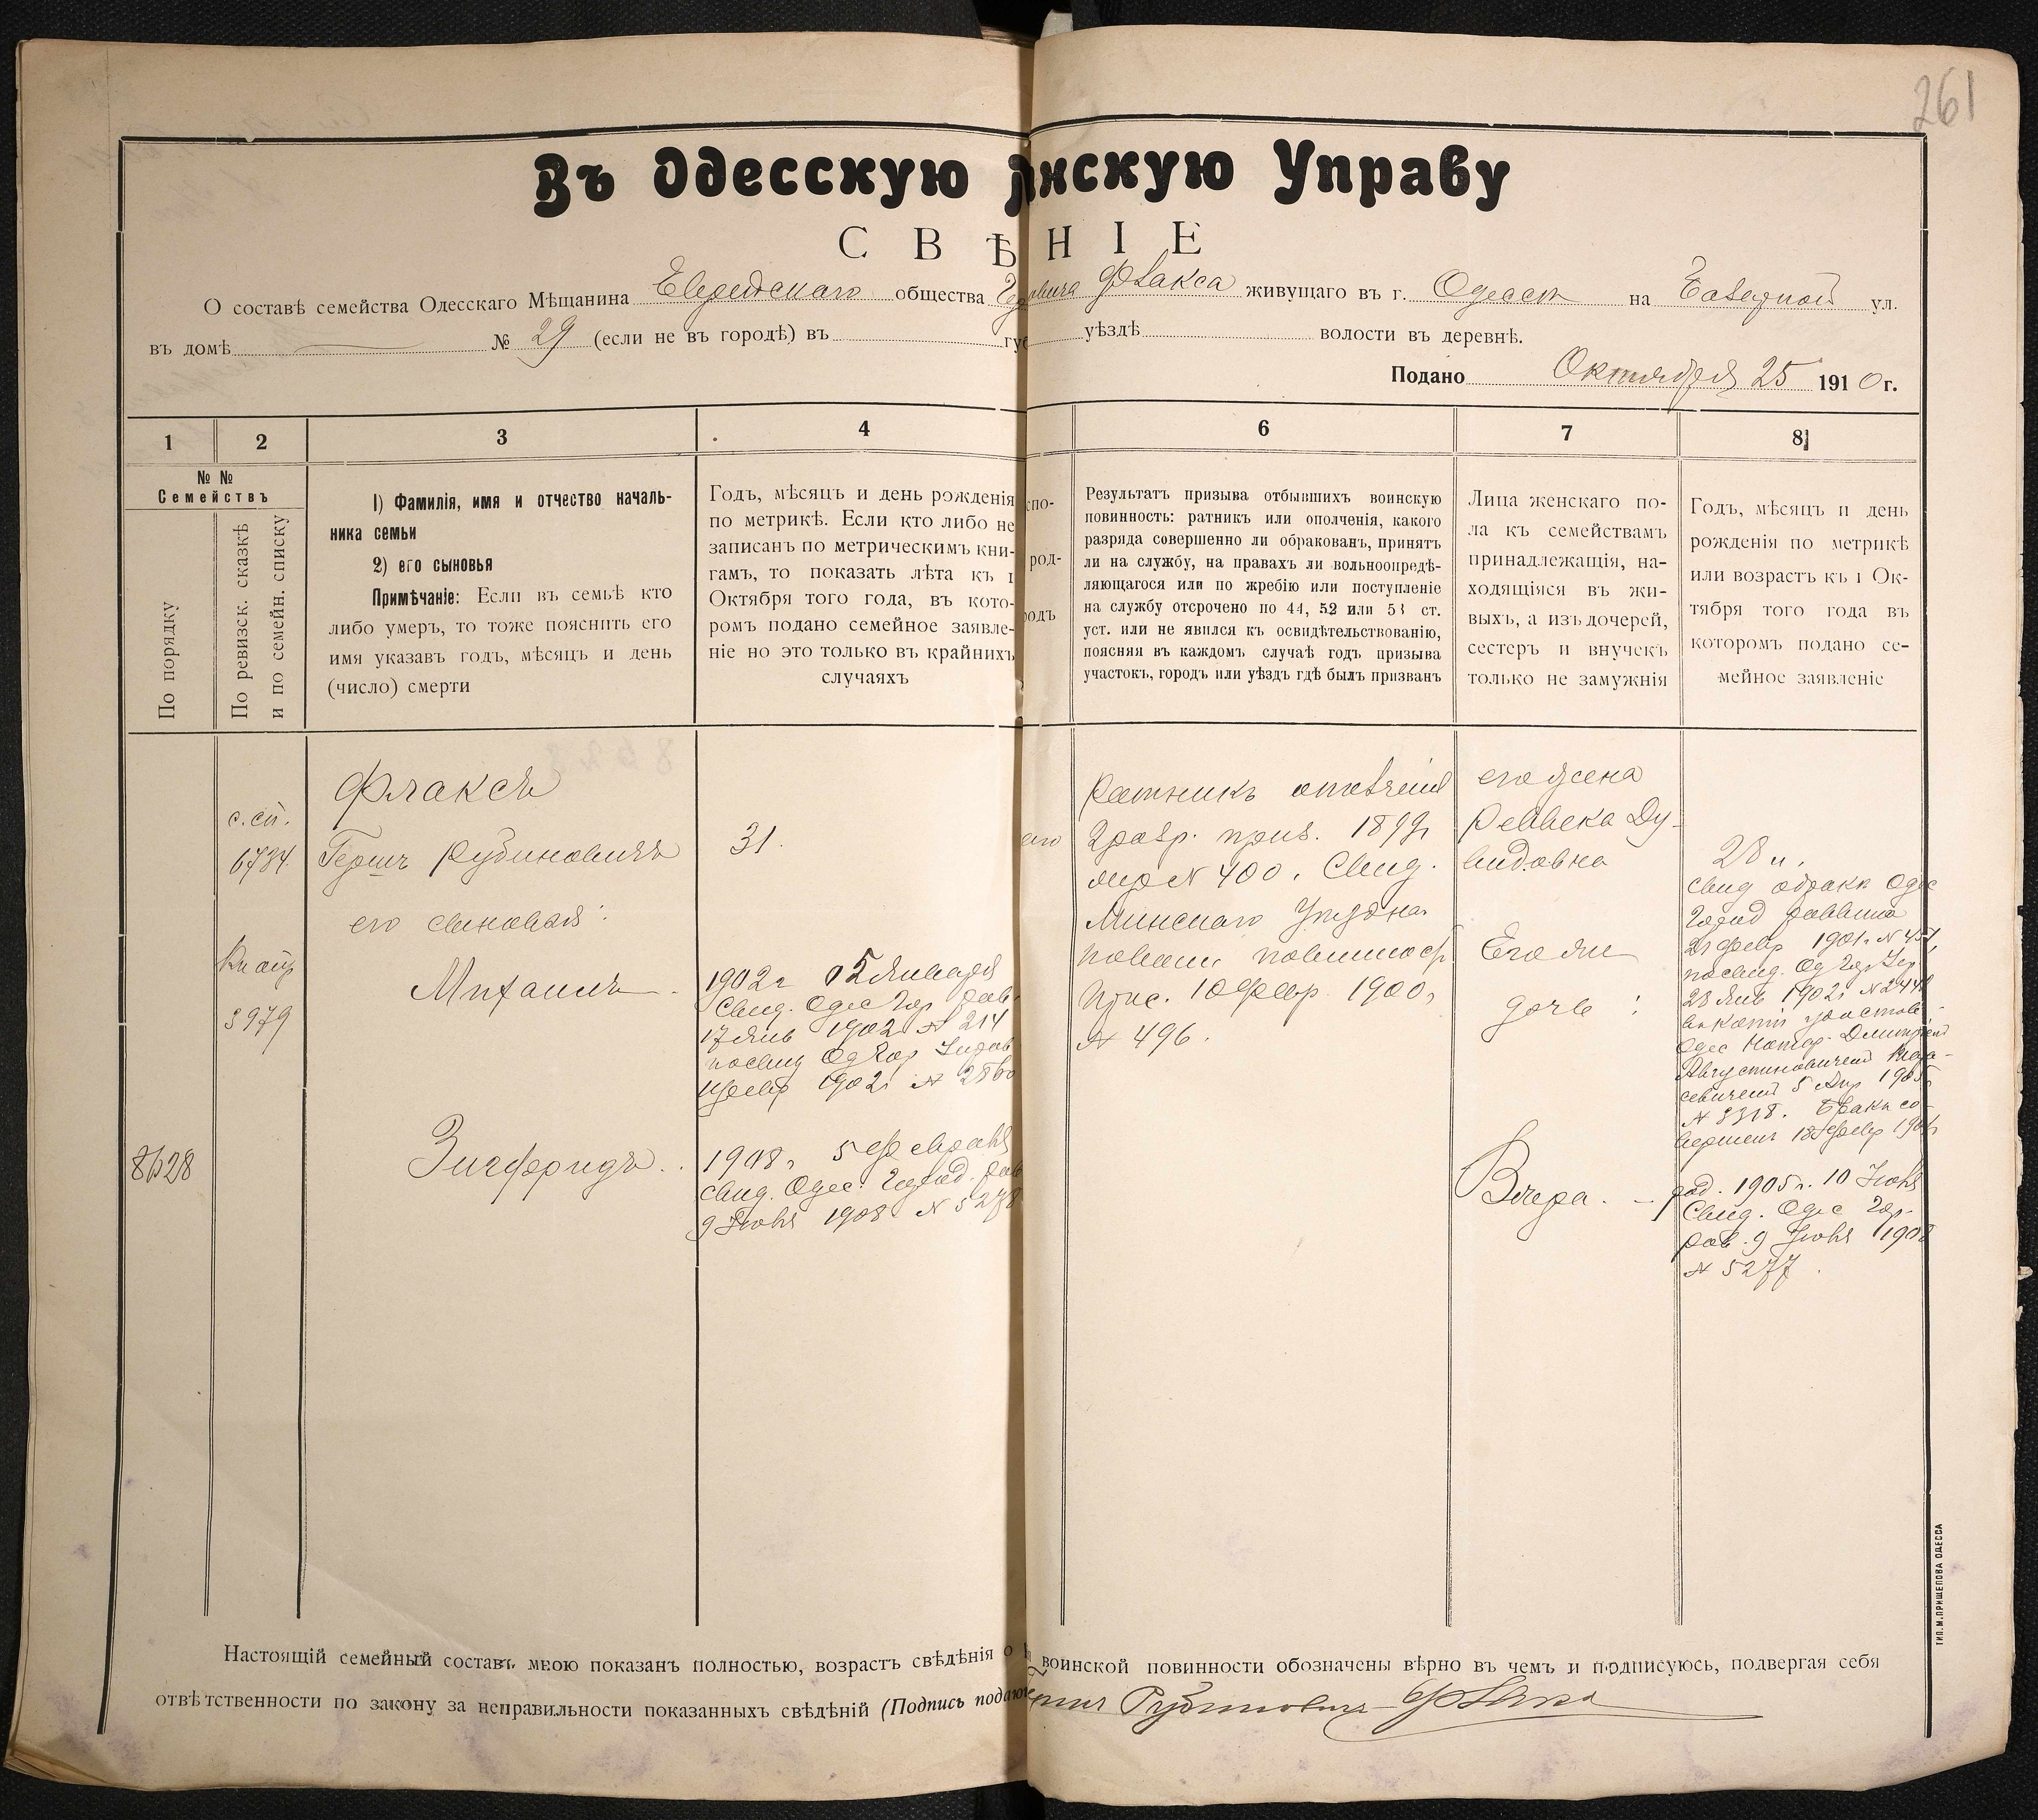 261
Въ Одесскую нскую Управу
СВѢНІЕ
О составѣ семейства Одесскаго Мѣщанина Еврейскаго общества Флакса живущаго въ г. Одессѣ на Базарной ул.
въ домѣ № 29 (если не въ городѣ) въ уѣздѣ волости въ деревнѣ.
Подано Октября 25 1910 г.
1 2 3 4 6 7 8
№ №
Семействъ
По порядку
По ревизск. сказкѣ
и по семейн. списку
1) Фамилія, имя и отчество началь-
ника семьи
2) его сыновья
Примѣчаніе: Если въ семьѣ кто
либо умеръ, то тоже пояснить его
имя указавъ годъ, мѣсяцъ и день
(число) смерти
Годъ, мѣсяцъ и день рожденія
по метрикѣ. Если кто либо не
записанъ по метрическимъ кни-
гамъ, то показать лѣта къ 1
Октября того года, въ кото-
ромъ подано семейное заявле-
ніе но это только въ крайнихъ
случаяхъ
спо-
род-
родъ
Результатъ призыва отбывшихъ воинскую
повинность: ратникъ или ополченія, какого
разряда совершенно ли обракованъ, принятъ
ли на службу, на правахъ ли вольноопредѣ-
ляющагося или по жребію или поступленіе
на службу отсрочено по 44, 52 или 53 ст.
уст. или не явился къ освидѣтельствованію,
поясняя въ каждомъ случаѣ годъ призыва
участокъ, городъ или уѣздъ гдѣ былъ призванъ
Лица женскаго по-
ла къ семействамъ
принадлежащія, на-
ходящіяся въ жи-
выхъ, а изъ дочерей,
сестеръ и внучекъ
только не замужнія
Годъ, мѣсяцъ и день
рожденія по метрикѣ
или возрастъ къ 1 Ок-
тября того года въ
которомъ подано се-
мейное заявленіе
с.сп.
6734
3979
8628
Флаксъ
Гершъ Рубиновичъ
его сыновья:
Михаилъ
Зигфридъ
31.
1902 г 05 Января
Свид. Одес Гор рав
17 Янв 1902 № 214
1902 № 2860
1908 г 5 Февраля
Свид. Одес. Город. рав
9 Іюня 1908 № 5278
Ратникъ ополченія
2 разр. приз. 1899 г
№ 400. Свид.
Минскаго Уѣздна
повинност
Прис. 10 Февр. 1900 г
№ 496.
его жена
Реввека Ду-
видовна
Его же
дочь:
Вѣра. –
28 л.
Свид о бракѣ Одес
Город раввина
21 Февр 1901 г №
28 Янв 1902 г №
Одес Нотар. Дмитріемъ
Августиновичемъ
5 Апр 1905
№ 3318. Бракъ со-
вершенъ 18 Февр 190
род. 1905 г. 10 Іюня
Свид. Одес Гор.
рав. 9 Іюня 1908
№ 5277
Настоящій семейный составъ мною показанъ полностью, возрастъ свѣдѣнія о воинской повинности обозначены вѣрно въ чемъ и подписуюсь, подвергая себя
отвѣтственности по закону за неправильности показанныхъ свѣдѣній (Подпись подаю Рубиновичъ Флаксъ
ТИП. М. ПРИЩЕПОВА ОДЕССА